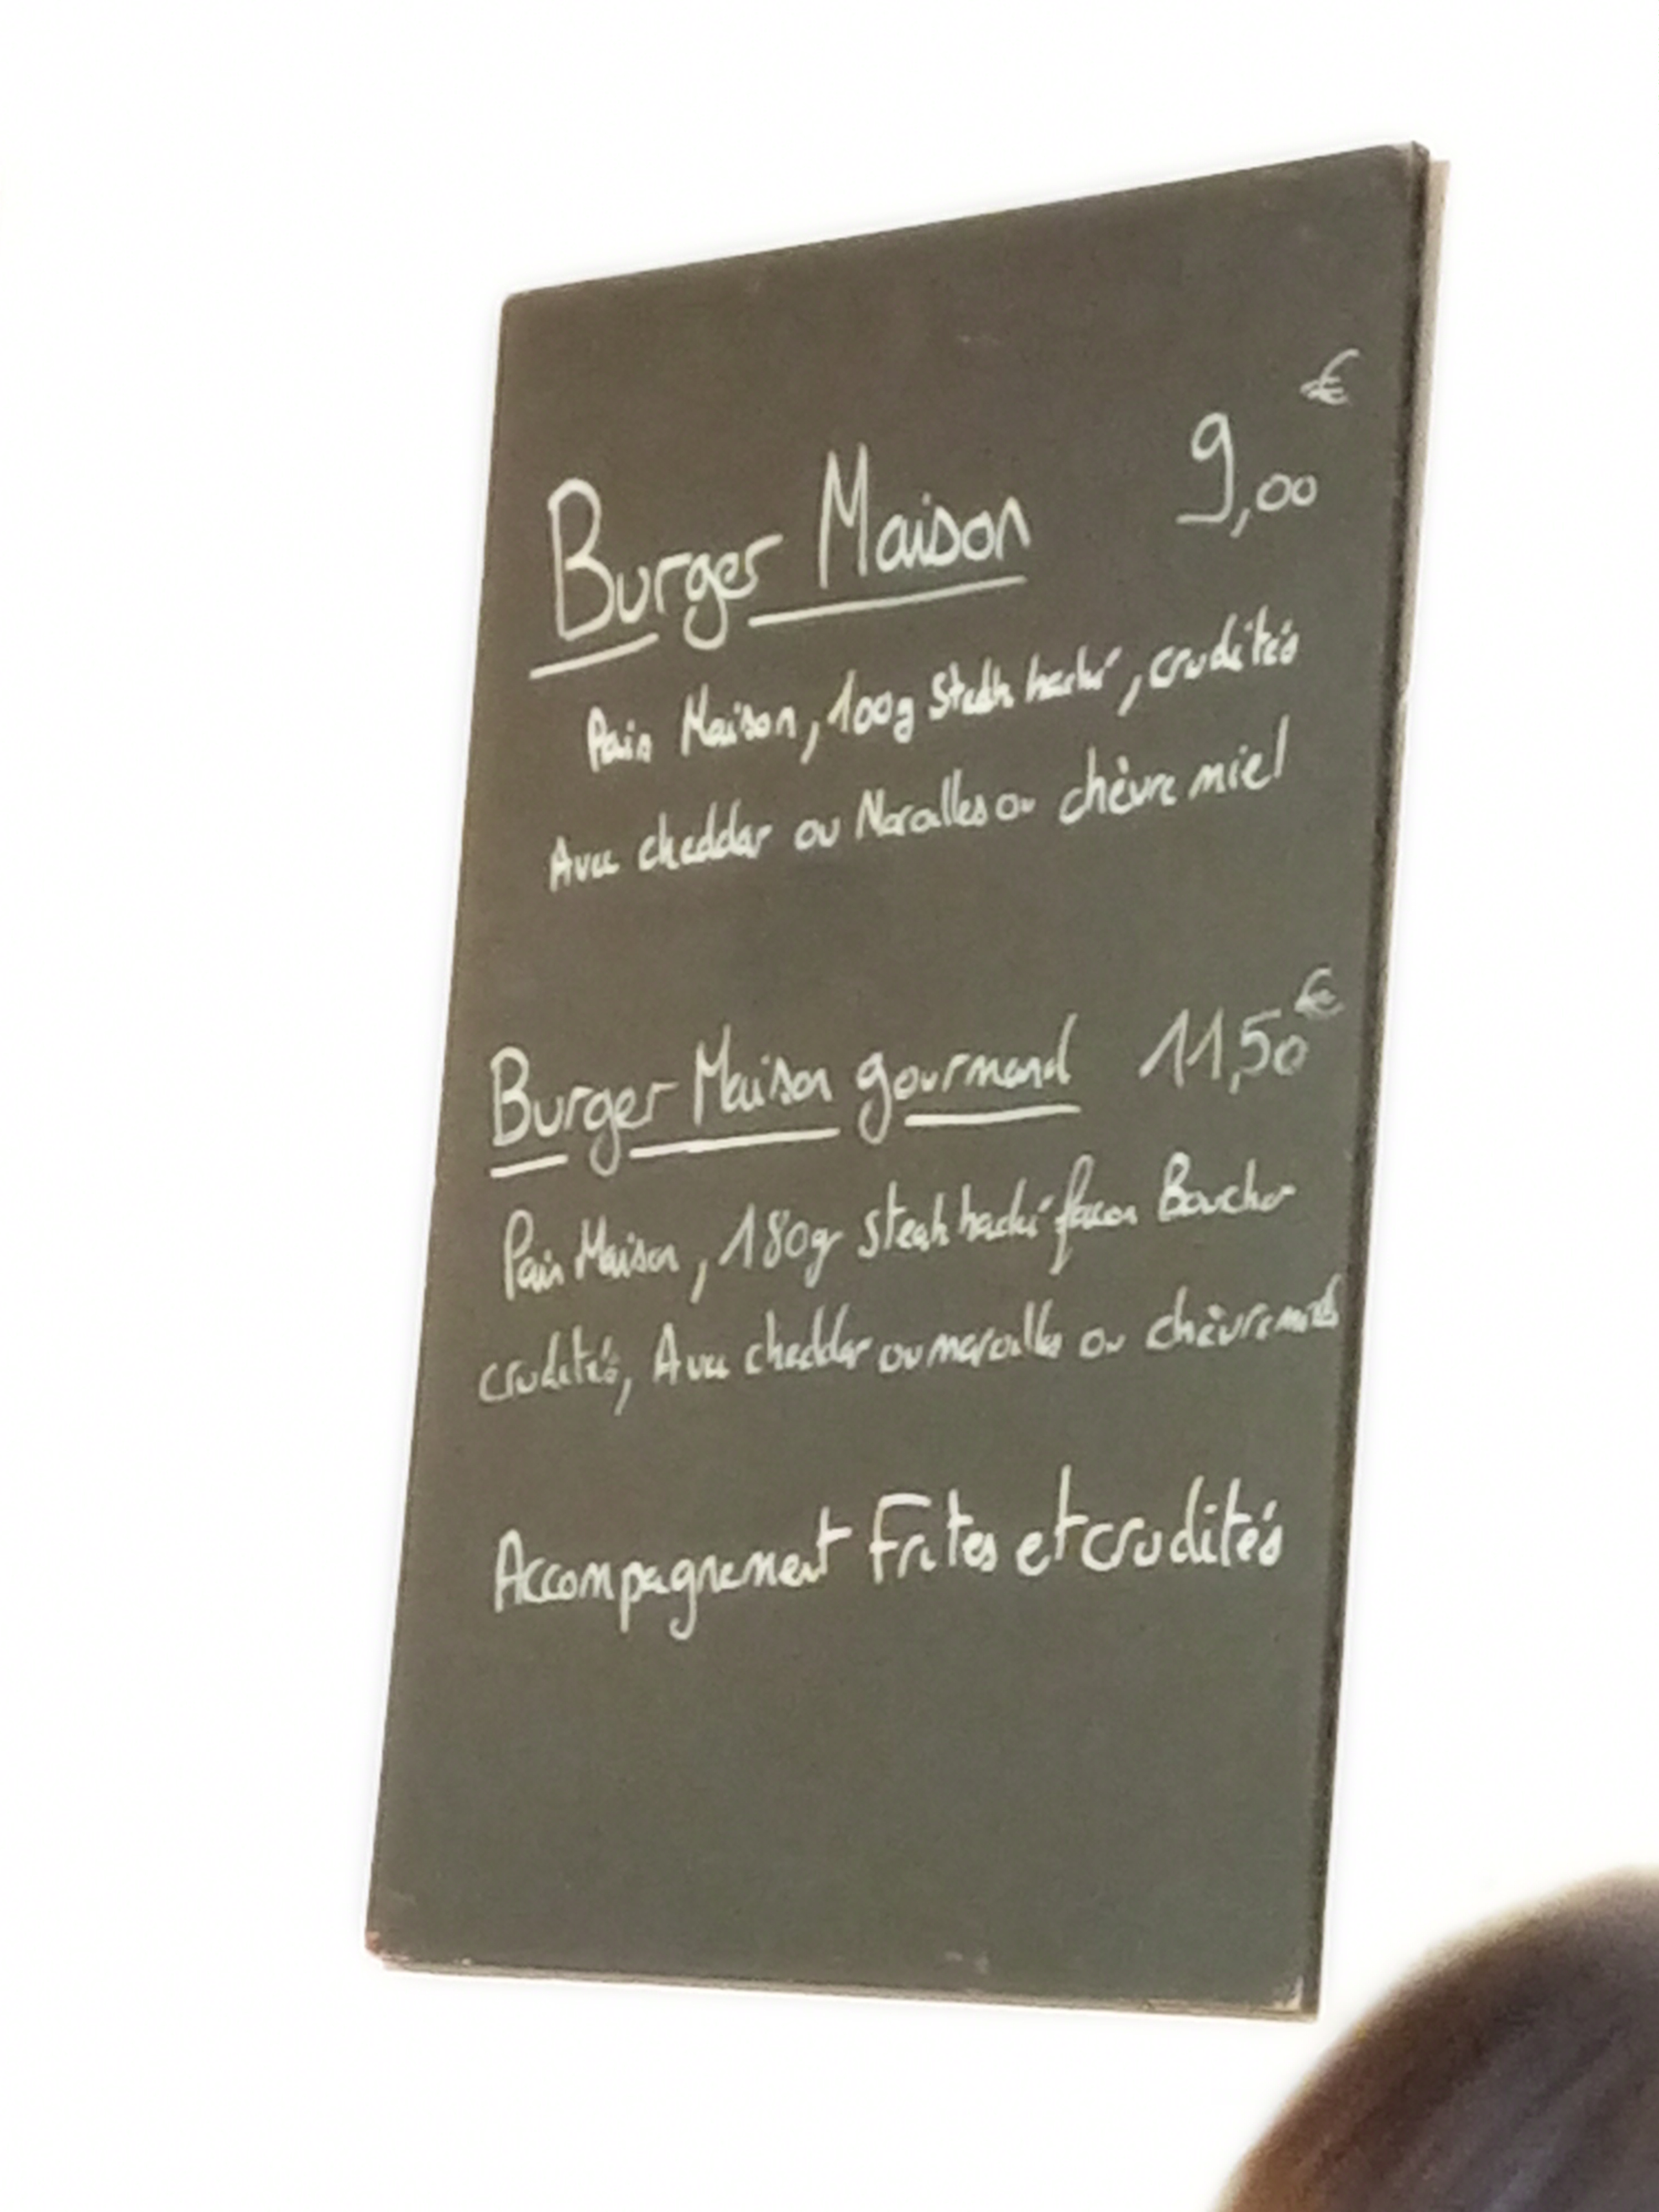 Burger Maison 9,00 €
Pain Maison, 100g Steak haché, crudités
Avec cheddar ou Maroilles ou chèvre miel
Burger Maison gourmand 11,50 €
Pain Maison, 180gr steak haché façon Boucher
crudités, Avec cheddar ou maroilles ou chèvre miel
Accompagnement Frites et crudités